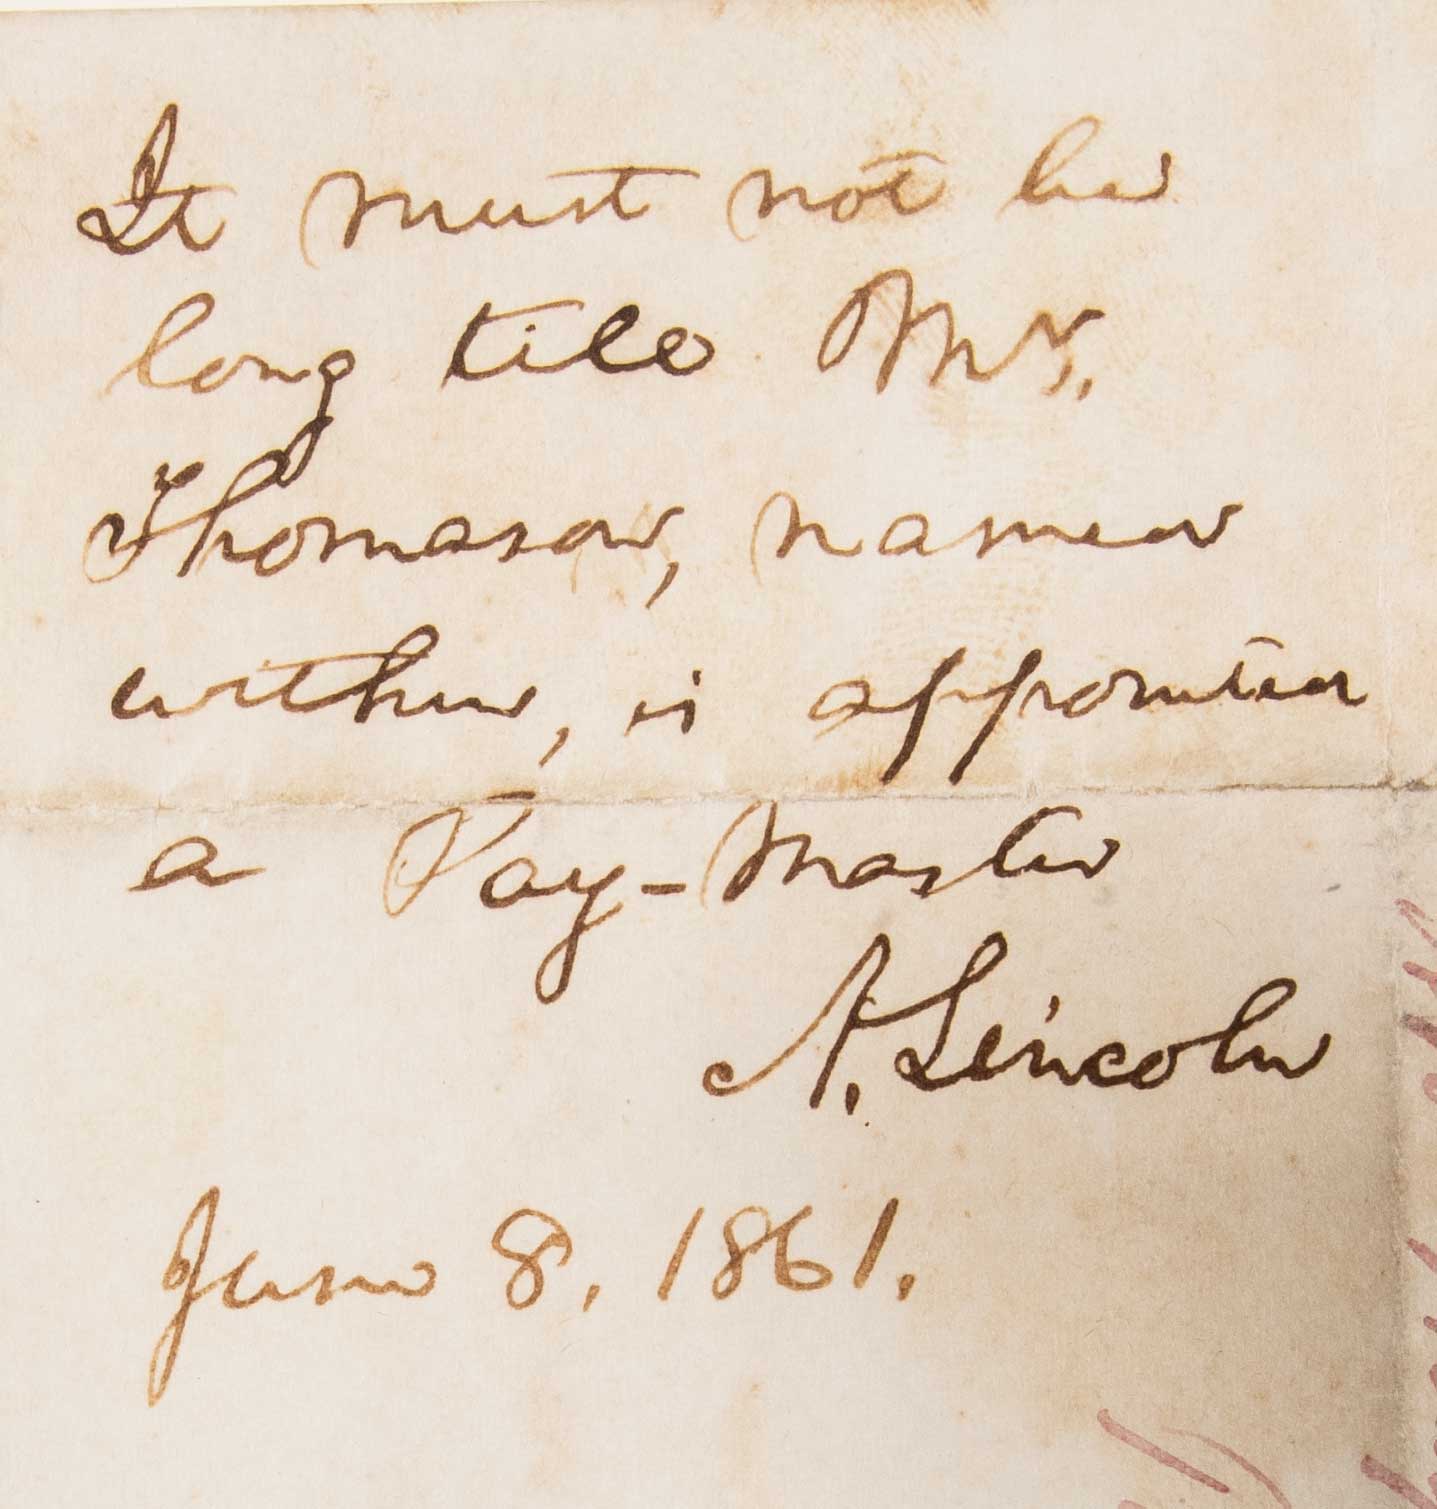 It must not be
long till Mr.
Thomason, named
within, is appointed
a Pay-Master
A. Lincoln
June 8, 1861.